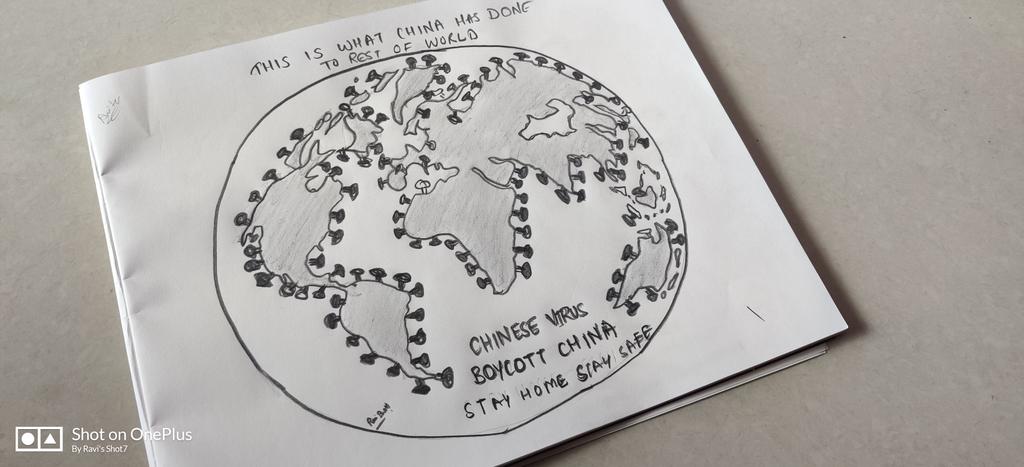 THIS IS WHAT CHINA HAS DONE
TO REST OF WORLD
CHINESE VIRUS
BOYCOTT CHINA
STAY HOME STAY SAFE
Shot on OnePlus
By Ravi's Shot7